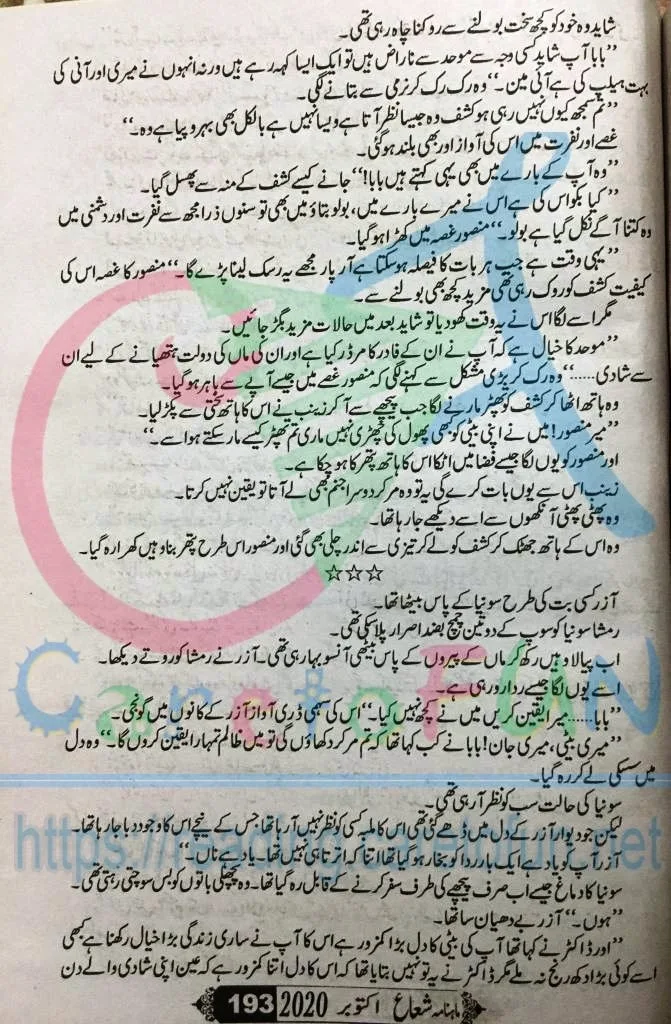 شاید وہ خود کو کچھ سخت بولنے سے روکنا چاہ رہی تھی۔
’’بابا آپ شاید کسی وجہ سے موحد سے ناراض ہیں تو ایک ایسا کہہ رہے ہیں ورنہ انہوں نے میری اور آنی کی
بہت ہیلپ کی ہے آئی مین۔‘‘ وہ رک رک کر نرمی سے بتانے لگی۔
’’تم سمجھ کیوں نہیں رہی ہو کشف وہ جیسا نظر آتا ہے ویسا نہیں ہے بالکل بھی بہروپیا ہے وہ۔‘‘
غصے اور نفرت میں اس کی آواز اور بھی بلند ہوگئی۔
’’وہ آپ کے بارے میں بھی یہی کہتے ہیں بابا!‘‘ جانے کیسے کشف کے منہ سے پھسل گیا۔
’’کیا بکواس کی ہے اس نے میرے بارے میں، بولو بتاؤ میں بھی تو سنوں ذرا مجھ سے نفرت اور دشمنی میں
وہ کتنا آگے نکل گیا ہے بولو۔‘‘ منصور غصہ میں کھڑا ہوگیا۔
’’یہی وقت ہے جب ہر بات کا فیصلہ ہوسکتا ہے آر پار مجھے یہ رسک لینا پڑے گا۔‘‘ منصور کا غصہ اس کی
کیفیت کشف کو روک رہی تھی مزید کچھ بھی بولنے سے۔
مگر اسے لگا اس نے یہ وقت کھو دیا تو شاید بعد میں حالات مزید بگڑ جائیں۔
’’موحد کا خیال ہے کہ آپ نے ان کے فادر کا مرڈر کیا ہے اور ان کی ماں کی دولت ہتھیانے کے لیے ان
سے شادی......‘‘ وہ رک کر بڑی مشکل سے کہنے لگی کہ منصور غصے میں جیسے آپے سے باہر ہوگیا۔
وہ ہاتھ اٹھا کر کشف کو تھپڑ مارنے لگا جب پیچھے سے آکر زینب نے اس کا ہاتھ سختی سے پکڑ لیا۔
’’میر منصور! میں نے اپنی بیٹی کو کبھی پھول کی چھڑی نہیں ماری تم تھپڑ کیسے مار سکتے ہو اسے۔‘‘
اور منصور کو یوں لگا جیسے فضا میں اٹکا اس کا ہاتھ پتھر کا ہوچکا ہے۔
زینب اس سے یوں بات کرے گی یہ تو وہ مر کر دوسرا جنم بھی لے آتا تو یقین نہیں کرتا۔
وہ پھٹی پھٹی آنکھوں سے اسے دیکھے جا رہا تھا۔
وہ اس کے ہاتھ جھٹک کر کشف کو لے کر تیزی سے اندر چلی بھی گئی اور منصور اس طرح پتھر بنا وہیں کھڑا رہ گیا۔
☆☆☆
آزر کسی بت کی طرح سونیا کے پاس بیٹھا تھا۔
رمشا سونیا کو سوپ کے دو تین چمچ بصد اصرار پلا سکی تھی۔
اب پیالا وہیں رکھ کر ماں کے پیروں کے پاس بیٹھی آنسو بہا رہی تھی۔ آزر نے رمشا کو روتے دیکھا۔
اسے یوں لگا جیسے ردا رو رہی ہے۔
’’بابا...... میرا یقین کریں میں نے کچھ نہیں کیا۔‘‘ اس کی سہمی ڈری آواز آزر کے کانوں میں گونجی۔
’’میری بیٹی، میری جان! بابا نے کب کہا تھا کہ تم مر کر دکھاؤں گی تو میں ظالم تمہارا یقین کروں گا۔‘‘ وہ دل
میں سسکی لے کر رہ گیا۔
سونیا کی حالت سب کو نظر آرہی تھی۔
لیکن جو دیوار آزر کے دل میں ڈھے گئی تھی اس کا ملبہ کسی کو نظر نہیں آرہا تھا، جس کے نیچے اس کا وجود دبا جا رہا تھا۔
’’آزر آپ کو یاد ہے ایک بار ردا کو بخار ہوگیا تھا اتنا کہ اترتا ہی نہیں تھا۔ یاد ہے ناں۔‘‘
سونیا کا دماغ جیسے اب صرف پیچھے کی طرف سفر کرنے کے قابل رہ گیا تھا۔ وہ پچھلی باتوں کو بس سوچتی رہتی تھی۔
’’ہوں۔‘‘ آزر بے دھیان سا تھا۔
’’اور ڈاکٹر نے کہا تھا آپ کی بیٹی کا دل بڑا کمزور ہے اس کا آپ نے ساری زندگی بڑا خیال رکھنا ہے کبھی
اسے کوئی بڑا دکھ رنج نہ ملے مگر ڈاکٹر نے یہ تو نہیں بتایا تھا کہ اس کا دل اتنا کمزور ہے کہ عین اپنی شادی والے دن
ماہنامہ شعاع اکتوبر 2020 193
CaretoFUN